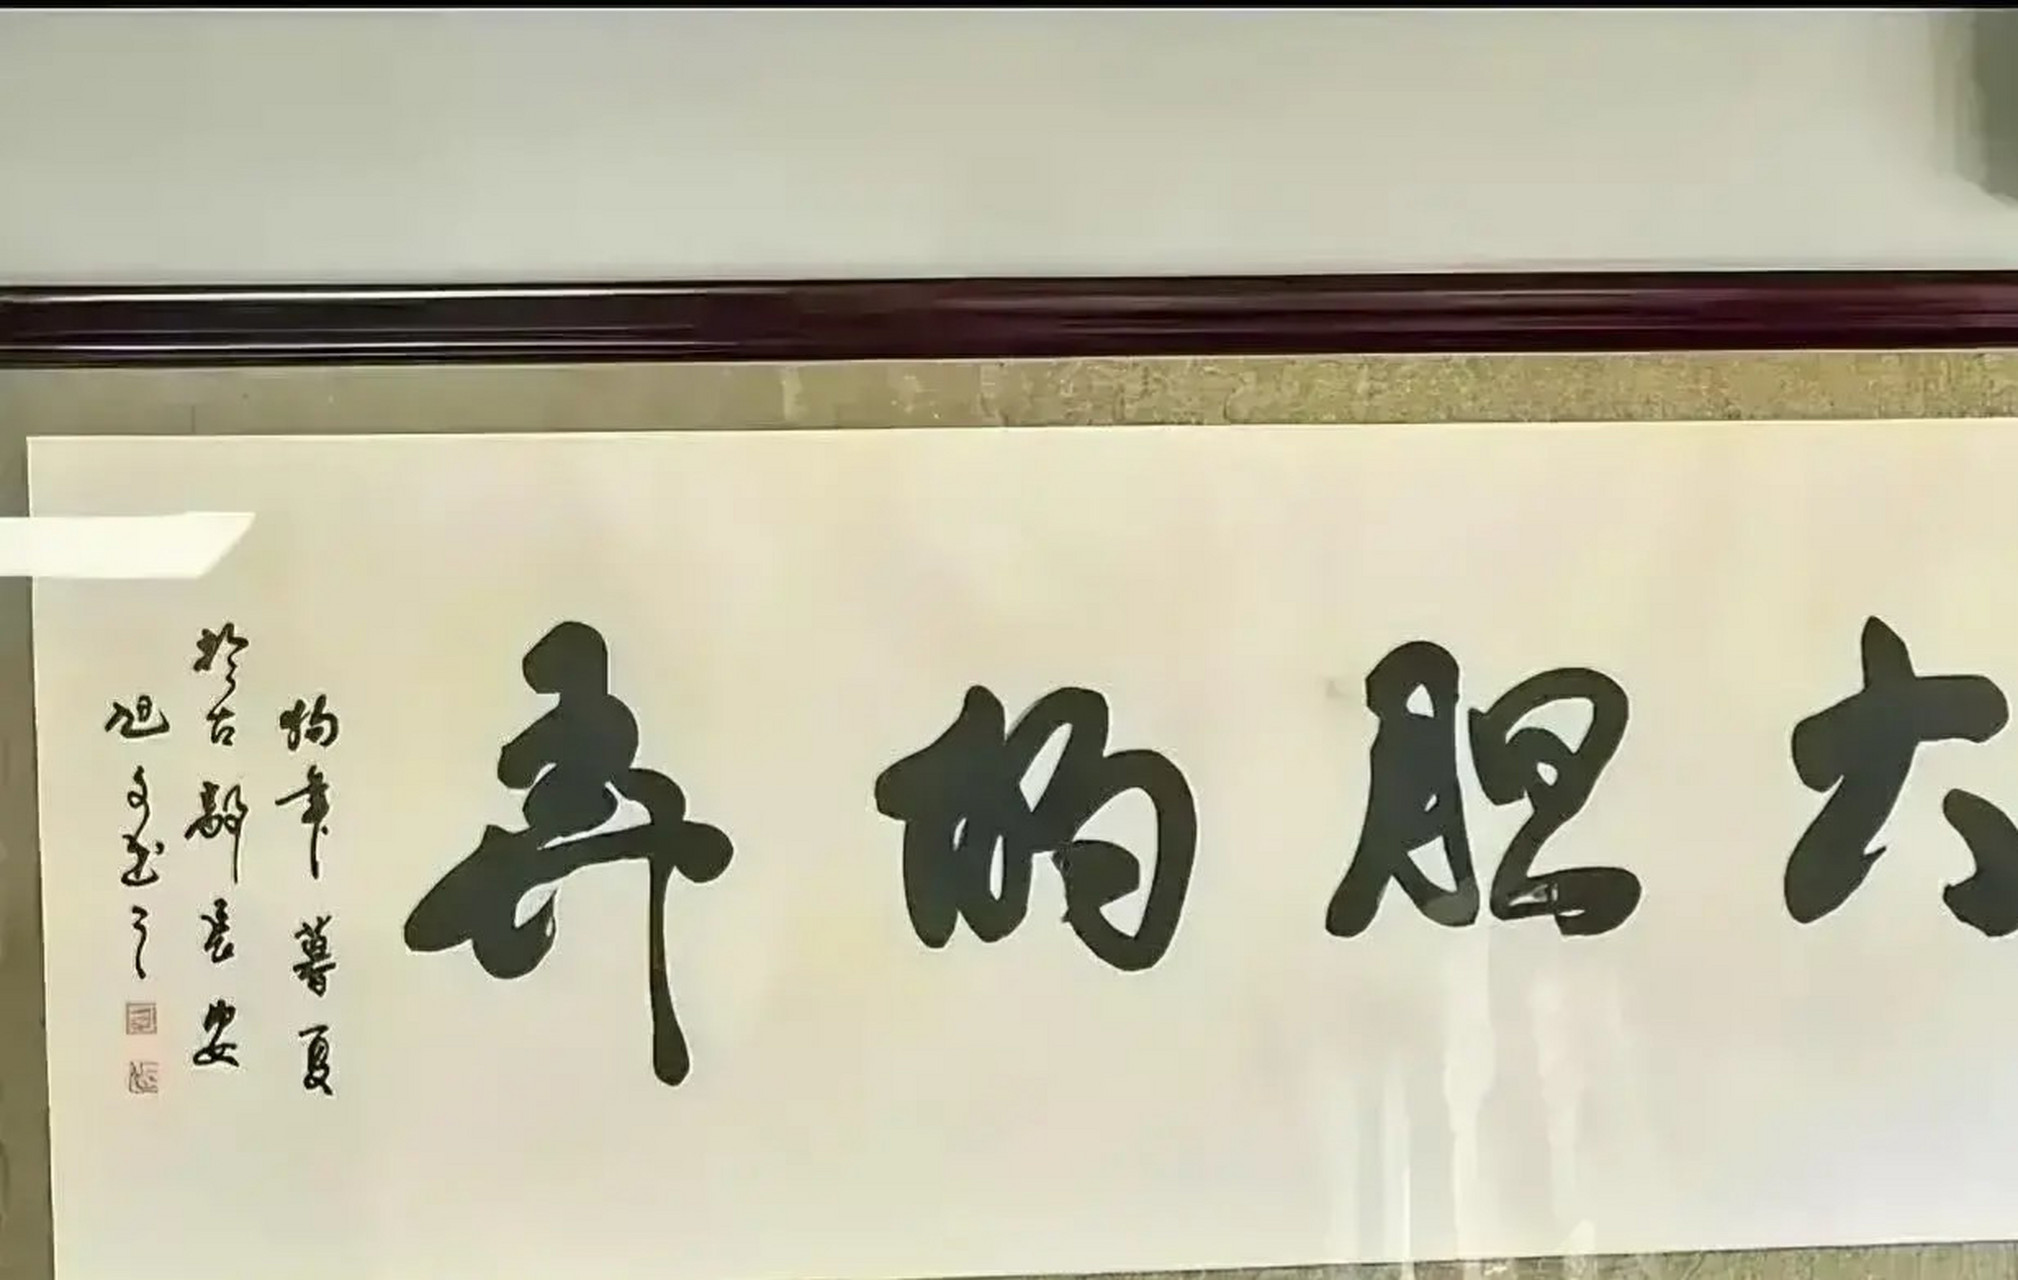 大胆的弄
狗年暮夏
於古都長安
旭文之